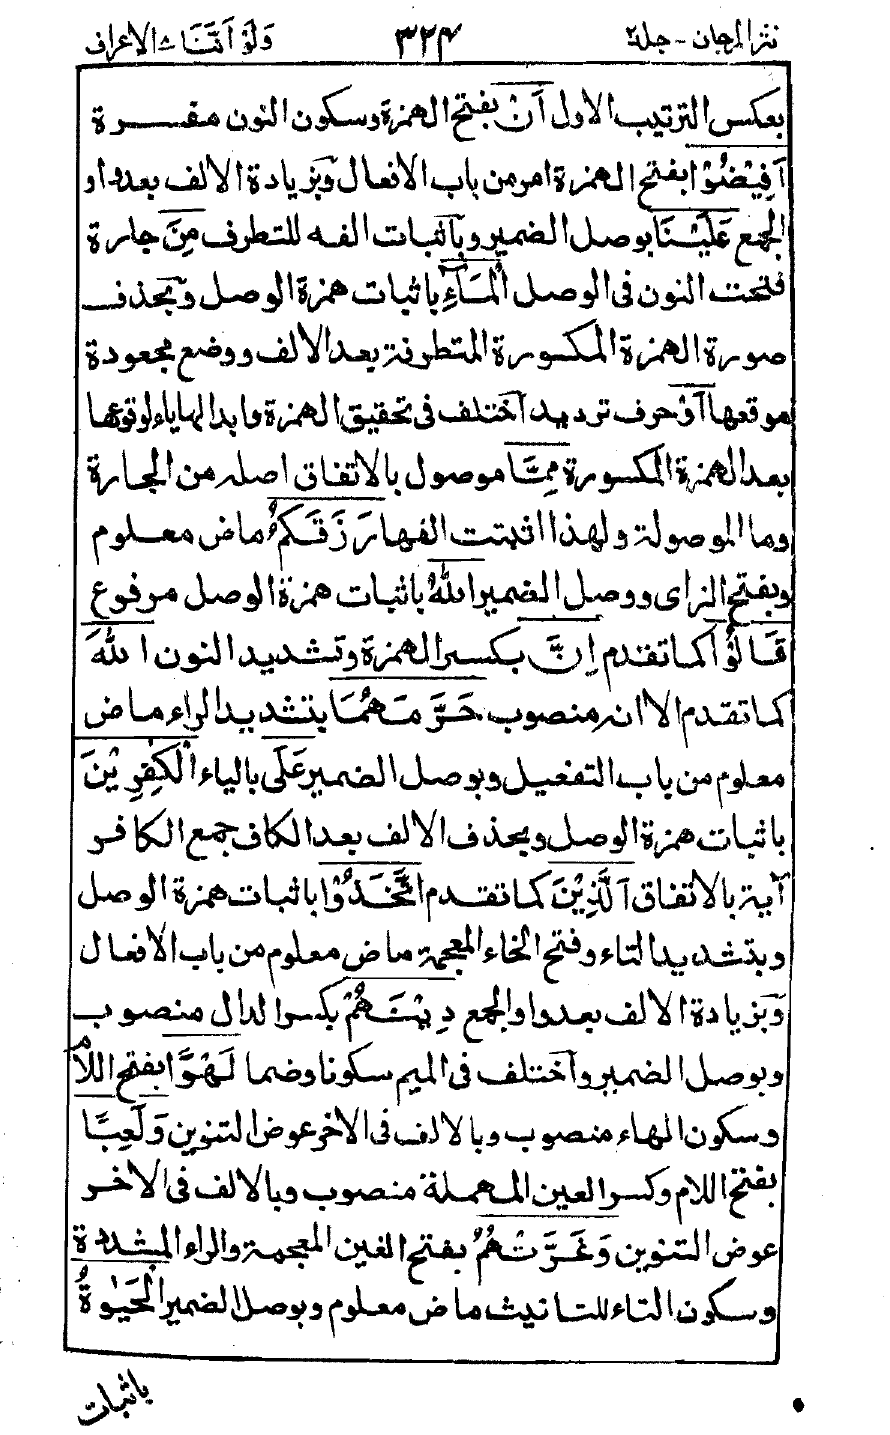 نثر المرجان - جلد ٢ ٣٢٤ وَلَوْ اَنَّنَا ٨ الاعراف
بعكس الترتيب الاول اَنْ بفتح الهمزة وسكون النون مفسرة
اَفِيْضُوْا بفتح الهمزة امر من باب الافعال وبزيادة الالف بعد واو
الجمع عَلَيْنَا بوصل الضمير وباثبات الفه للتطرف مِنَ جارة
فتحت النون فى الوصل الْمَآءِ باثبات همزة الوصل وبحذف
صورة الهمزة المكسورة المتطرفة بعد الالف ووضع مجعودة
موقعها اَوْ حرف ترديد اختلف فى تحقيق الهمزة وابدالها ياء لوقوعها
بعد الهمزة المكسورة مِمَّا موصول بالاتفاق اصله من الجارة
وما الموصولة ولهذا اثبتت الفها رَزَقَكُمُ ماض معلوم
وبفتح الزاى ووصل الضمير اللهُ باثبات همزة الوصل مرفوع
قَالُوْٓا كما تقدم اِنَّ بكسر الهمزة وتشديد النون اللهَ
كما تقدم الا انه منصوب حَرَّمَهُمَا بتشديد الراء ماض
معلوم من باب التفعيل وبوصل الضمير عَلَى بالياء الْكٰفِرِيْنَ
باثبات همزة الوصل وبحذف الالف بعد الكاف جمع الكافر
آية بالاتفاق الَّذِيْنَ كما تقدم اتَّخَذُوْا باثبات همزة الوصل
وبتشديد التاء وفتح الخاء المعجمة ماض معلوم من باب الافعال
وبزيادة الالف بعد واو الجمع دِيْنَهُمْ بكسر الدال منصوب
وبوصل الضمير واختلف فى الميم سكونا وضما لَهْوًا بفتح اللام
وسكون الهاء منصوب وبالالف فى الاخر عوض التنوين وَّلَعِبًا
بفتح اللام وكسر العين المهملة منصوب وبالالف فى الاخر
عوض التنوين وَغَرَّتْهُمُ بفتح الغين المعجمة والراء المشددة
وسكون التاء للتانيث ماض معلوم وبوصل الضمير الْحَيٰوةُ
باثبات